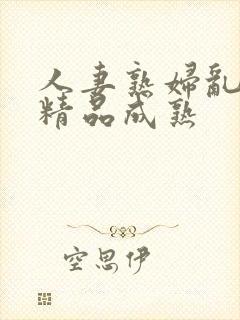 人妻熟婦亂
精品成熟
空思伊